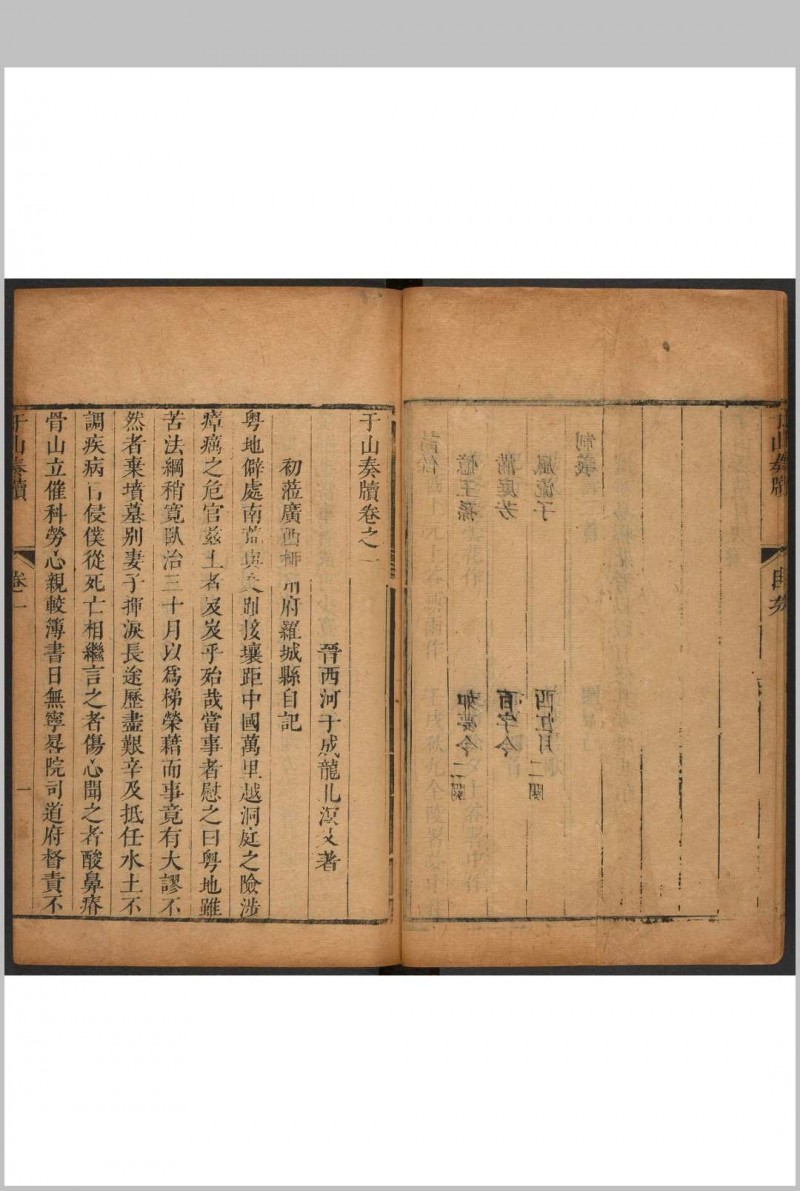 于山奏牘
目次
制義
風流子
西江月二闋
滿庭芳
百字令
憶王孫
如夢令二闋
于山奏牘卷之一
晉西河于成龍北溟父著
初蒞廣西柳州府羅城縣自記
粵地僻處南荒與交趾接壤距中國萬里越洞庭之險涉
瘴癘之危官茲土者岌岌乎殆哉當事者慰之曰粵地雖
苦法綱稍寬臥治三十月以爲梯榮藉而事竟有大謬不
然者棄墳墓別妻子揮淚長途歷盡艱辛及抵任水土不
調疾病 侵僕從死亡相繼言之者傷心聞之者酸鼻瘠
骨山立催科勞心親較簿書日無寧晷院司道府督責不
于山奏牘
卷一
一